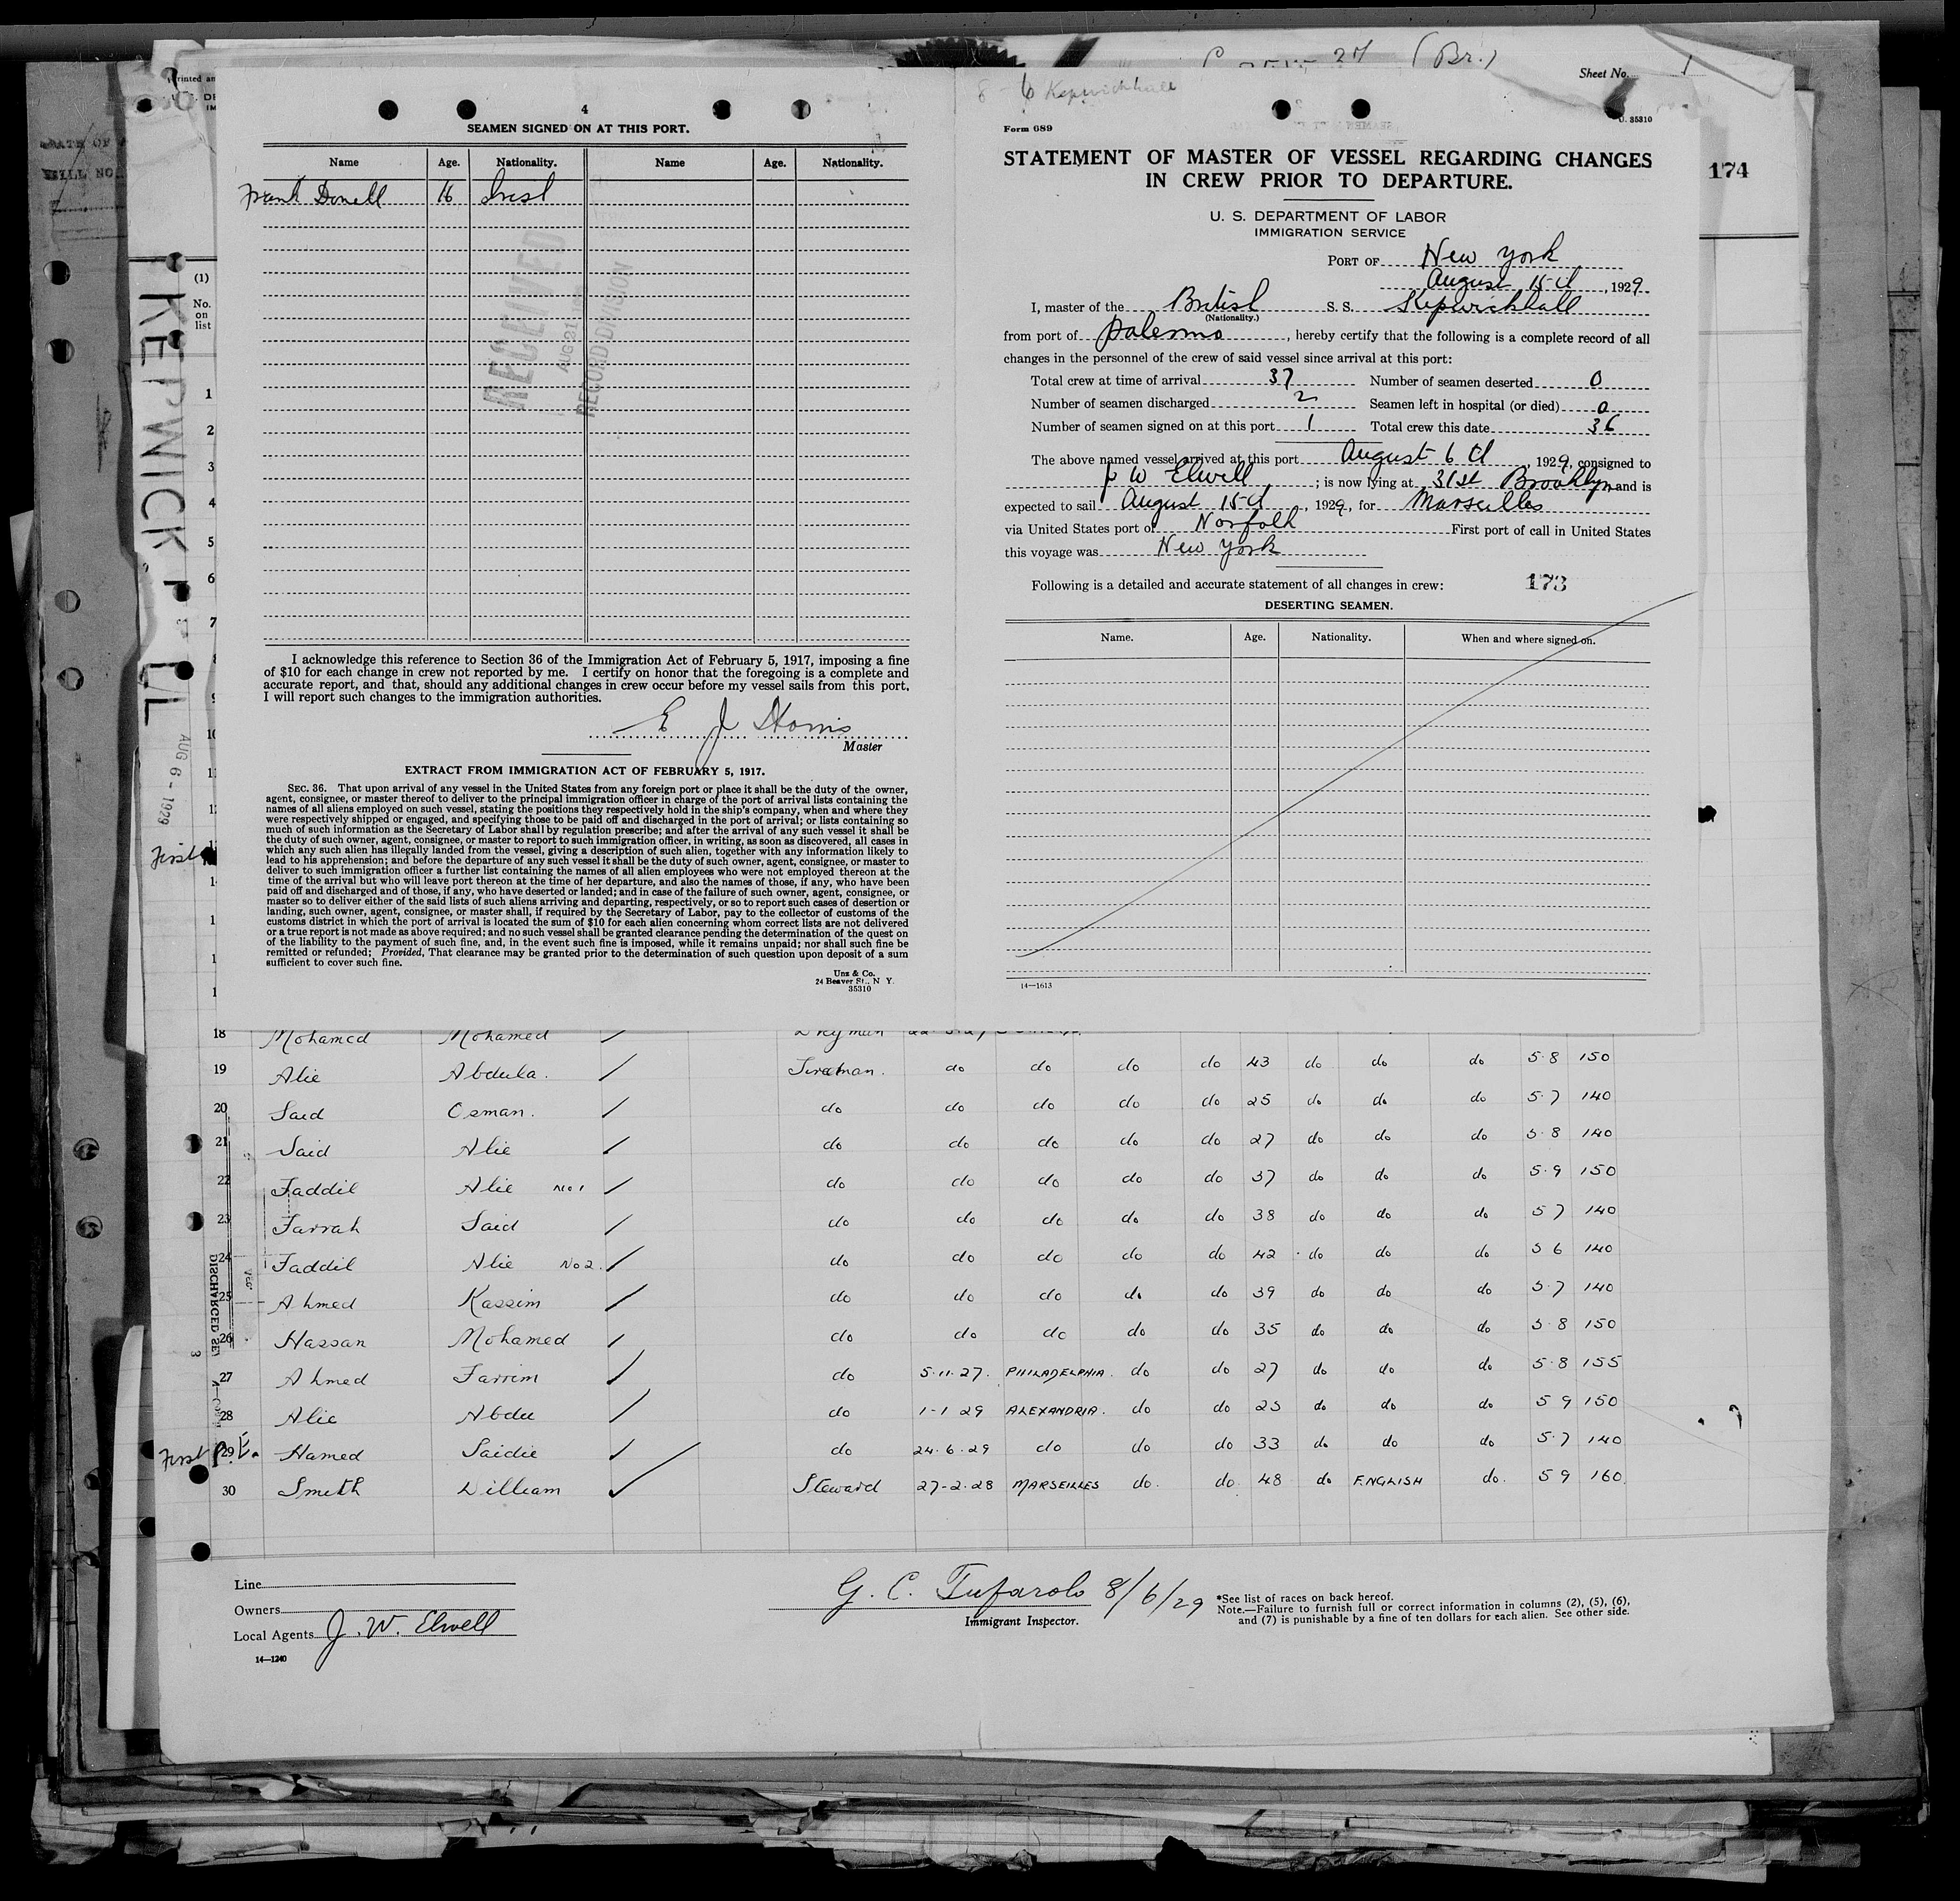 (Br.)
Sheet No. 1
Printed an
4
SEAMEN SIGNED ON AT THIS PORT.
Name Age. Nationality. Name Age. Nationality.
Frank Donell 16 Irish
RECEIVED
AUG 21
RECORD DIVISION
I acknowledge this reference to Section 36 of the Immigration Act of February 5, 1917, imposing a fine
of $10 for each change in crew not reported by me. I certify on honor that the foregoing is a complete and
accurate report, and that, should any additional changes in crew occur before my vessel sails from this port,
I will report such changes to the immigration authorities.
E J
Master
EXTRACT FROM IMMIGRATION ACT OF FEBRUARY 5, 1917.
SEC. 36. That upon arrival of any vessel in the United States from any foreign port or place it shall be the duty of the owner,
agent, consignee, or master thereof to deliver to the principal immigration officer in charge of the port of arrival lists containing the
names of all aliens employed on such vessel, stating the positions they respectively hold in the ship's company, when and where they
were respectively shipped or engaged, and specifying those to be paid off and discharged in the port of arrival; or lists containing so
much of such information as the Secretary of Labor shall by regulation prescribe; and after the arrival of any such vessel it shall be
the duty of such owner, agent, consignee, or master to report to such immigration officer, in writing, as soon as discovered, all cases in
which any such alien has illegally landed from the vessel, giving a description of such alien, together with any information likely to
lead to his apprehension; and before the departure of any such vessel it shall be the duty of such owner, agent, consignee, or master to
deliver to such immigration officer a further list containing the names of all alien employees who were not employed thereon at the
time of the arrival but who will leave port thereon at the time of her departure, and also the names of those, if any, who have been
paid off and discharged and of those, if any, who have deserted or landed; and in case of the failure of such owner, agent, consignee, or
master so to deliver either of the said lists of such aliens arriving and departing, respectively, or so to report such cases of desertion or
landing, such owner, agent, consignee, or master shall, if required by the Secretary of Labor, pay to the collector of customs of the
customs district in which the port of arrival is located the sum of $10 for each alien concerning whom correct lists are not delivered
or a true report is not made as above required; and no such vessel shall be granted clearance pending the determination of the quest on
of the liability to the payment of such fine, and, in the event such fine is imposed, while it remains unpaid; nor shall such fine be
remitted or refunded; Provided, That clearance may be granted prior to the determination of such question upon deposit of a sum
sufficient to cover such fine.
Unz & Co.
24 Beaver St., N Y.
35310
8 - 6 Kepwickhall
U. 35310
Form 689
STATEMENT OF MASTER OF VESSEL REGARDING CHANGES
IN CREW PRIOR TO DEPARTURE.
174
U. S. DEPARTMENT OF LABOR
IMMIGRATION SERVICE
PORT OF New York
August 15th, 1929.
I, master of the British S. S. Kepwickhall
(Nationality.)
from port of Palermo, hereby certify that the following is a complete record of all
changes in the personnel of the crew of said vessel since arrival at this port:
Total crew at time of arrival 37 Number of seamen deserted 0
Number of seamen discharged 2 Seamen left in hospital (or died) 0
Number of seamen signed on at this port 1 Total crew this date 36
The above named vessel arrived at this port August 6th, 1929, consigned to
J W Elwell; is now lying at 31st Brooklyn and is
expected to sail August 15th, 1929, for Marseilles
via United States port of Norfolk First port of call in United States
this voyage was New York
Following is a detailed and accurate statement of all changes in crew: 173
DESERTING SEAMEN.
Name. Age. Nationality. When and where signed on.
14—1613
(1)
No.
on
list
1
2
3
4
5
6
7
KEPWICK HALL
AUG 6 - 1929
First
18 Mohamed Mohamed
19 Alie Abdula. Fireman. do do do do 43 do do do 5·8 150
20 Said Osman. do do do do do 25 do do do 5·7 140
21 Said Alie do do do do do 27 do do do 5·8 140
22 Faddil Alie No 1 do do do do do 37 do do do 5·9 150
23 Farrah Said do do do do do 38 do do do 5 7 140
24 Faddil Alie No 2. do do do do do 42 do do do 5 6 140
25 Ahmed Kassim do do do do do 39 do do do 5·7 140
26 Hassan Mohamed do do do do do 35 do do do 5·8 150
27 Ahmed Farrim do 5·11·27. PHILADELPHIA. do do 27 do do do 5·8 155
28 Alie Abdu do 1-1 29 ALEXANDRIA. do do 25 do do do 5 9 150
First P.E. 29 Hamed Saidie do 24·6·29 do do do 33 do do do 5·7 140
30 Smith William Steward 27-2-28 MARSEILLES do. do. 48 do ENGLISH do. 5 9 160.
DISCHARGED SE
Line
Owners
Local Agents J. W. Elwell
14—1240
G. C. Tufarolo 8/6/29
Immigrant Inspector.
*See list of races on back hereof.
Note.—Failure to furnish full or correct information in columns (2), (5), (6),
and (7) is punishable by a fine of ten dollars for each alien. See other side.